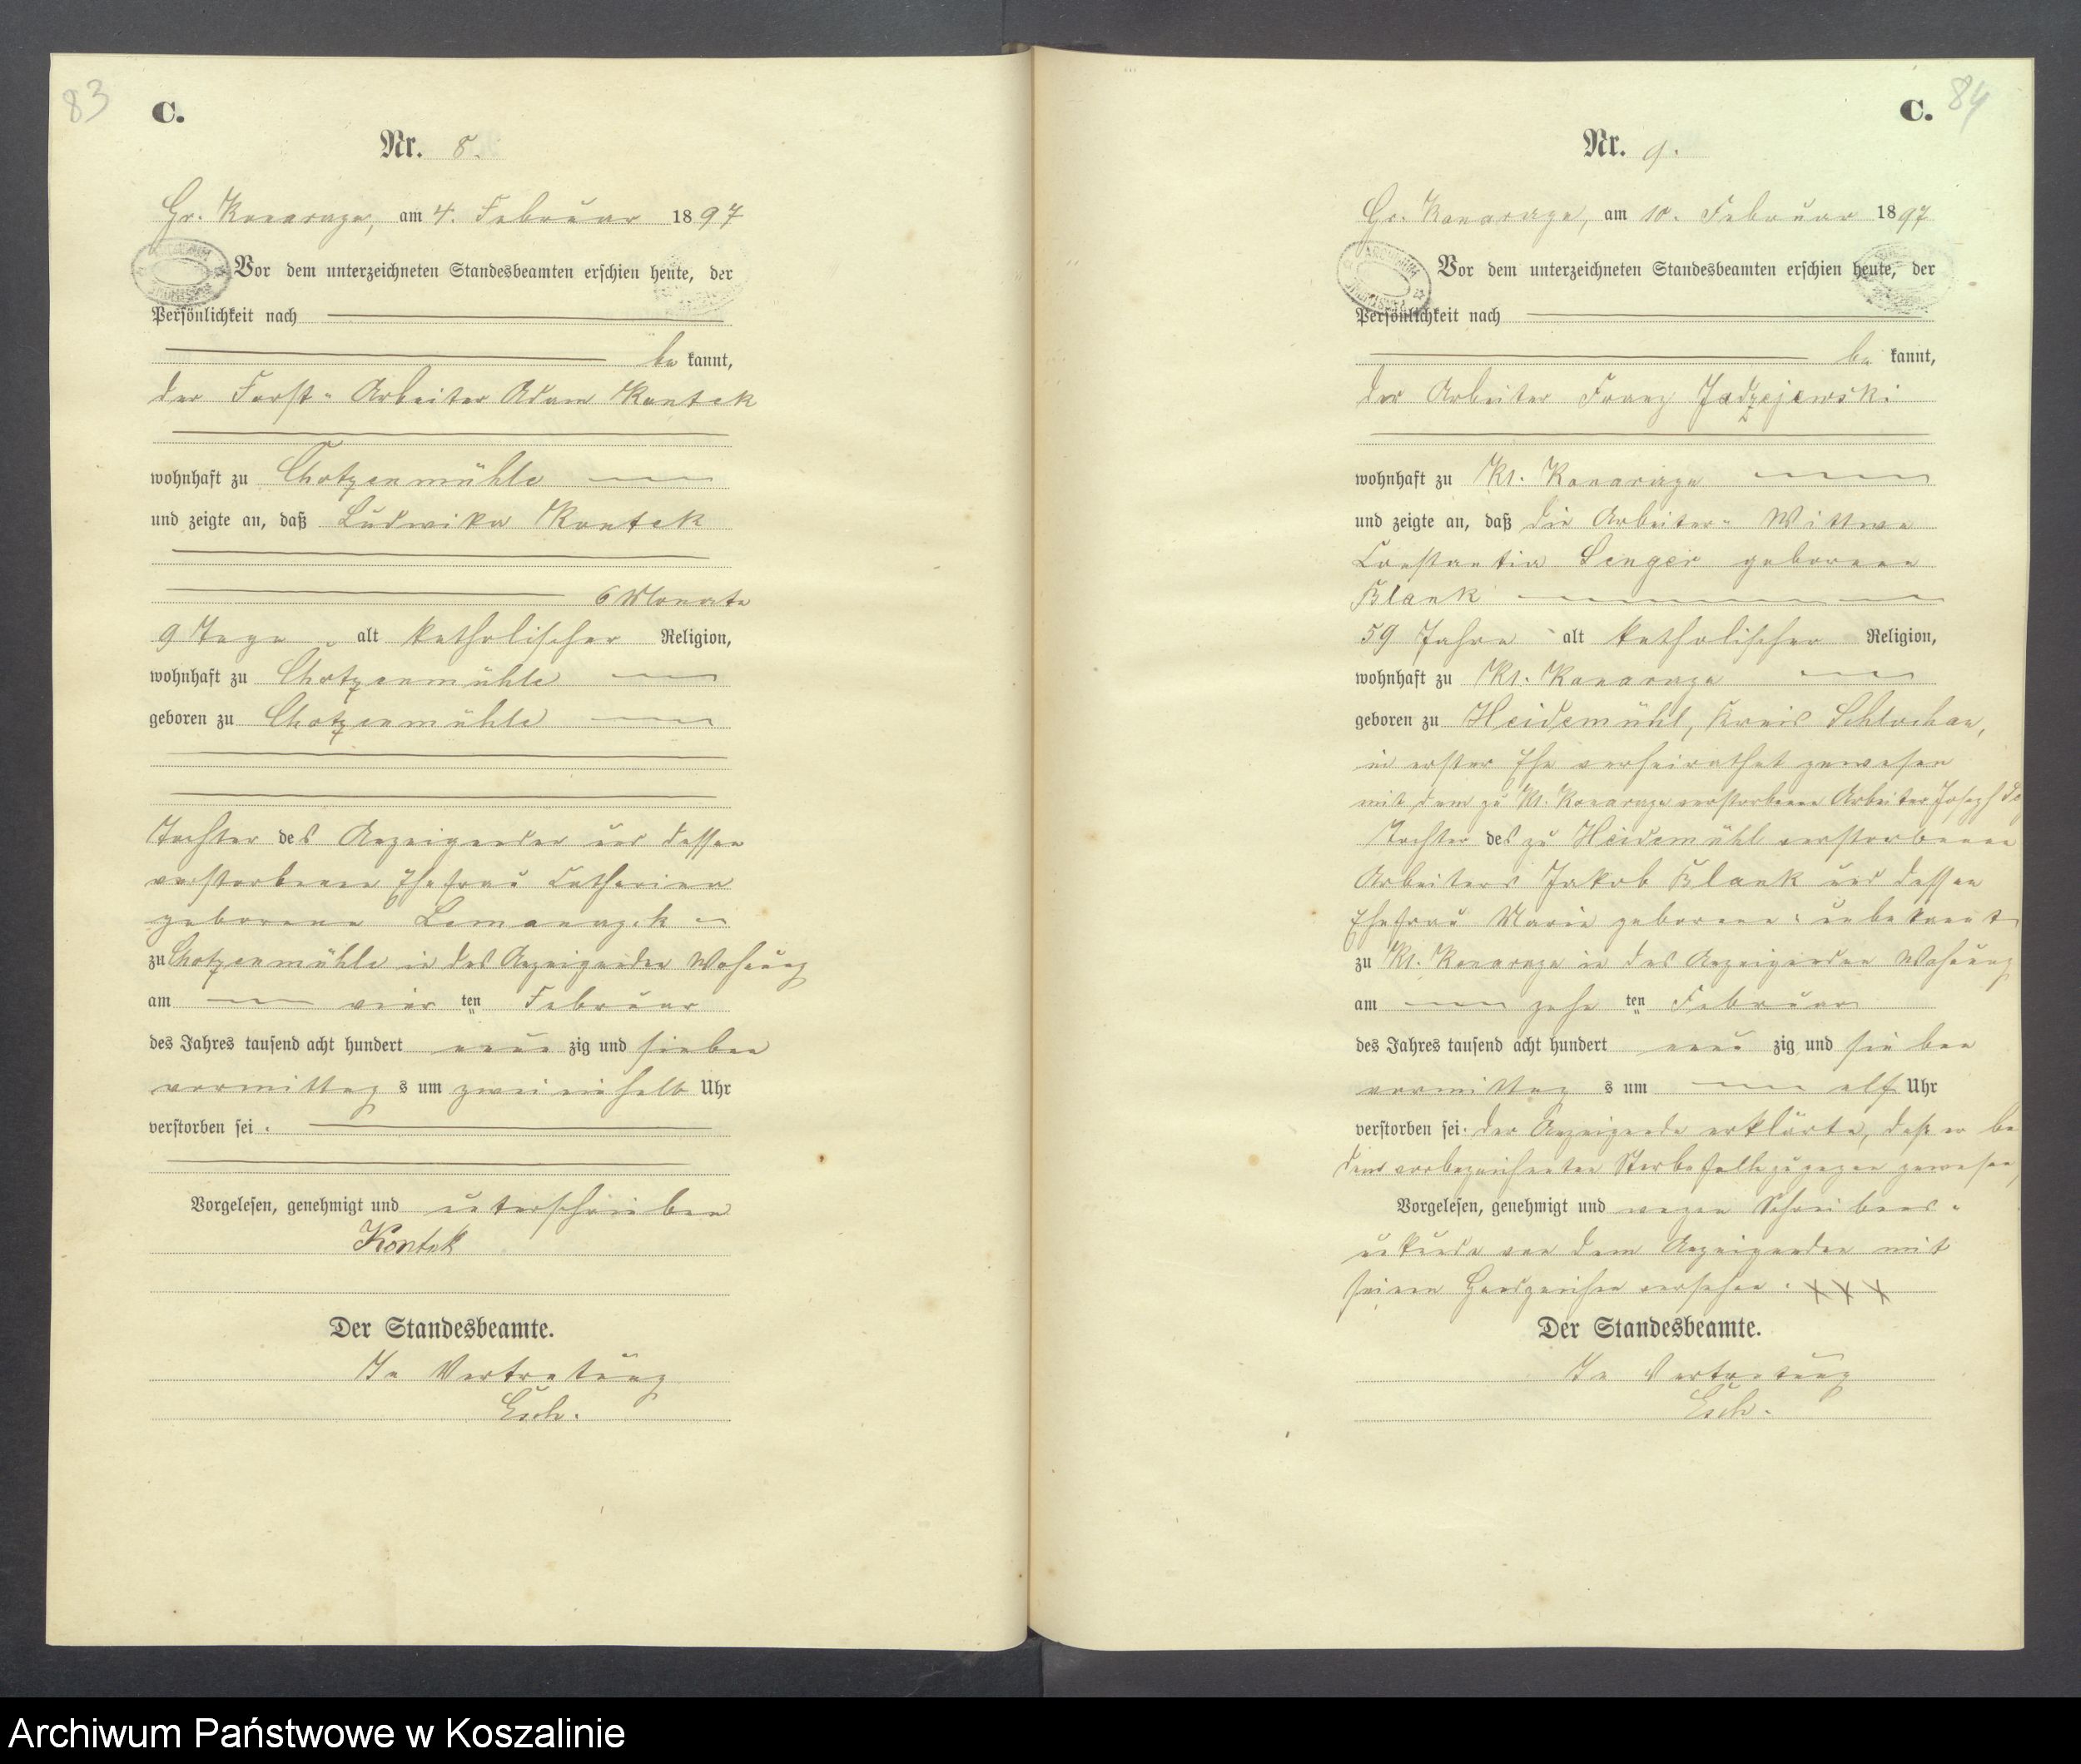 83
C.
Nr. 8.
Gr. Konarczyn, am 4. Februar 1897
Vor dem unterzeichneten Standesbeamten erschien heute, der
Persönlichkeit nach
bekannt,
der Forst-Arbeiter Adam Kontek
wohnhaft zu Chotzenmühle
und zeigte an, daß Ludwika Kontek
6 Monate
9 Tage alt katholischer Religion,
wohnhaft zu Chotzenmühle
geboren zu Chotzenmühle
Tochter des Anzeigenden und dessen
verstorbenen Ehefrau Catharina
geborene Lemanczyk
zu Chotzenmühle in des Anzeigenden Wohnung
am vierten Februar
des Jahres tausend acht hundert neunzig und sieben
vormittags um zweieinhalb Uhr
verstorben sei.
Vorgelesen, genehmigt und unterschrieben
Kontek
Der Standesbeamte.
In Vertretung
Esch.
84
C.
Nr. 9.
Gr. Konarczyn, am 10. Februar 1897
Vor dem unterzeichneten Standesbeamten erschien heute, der
Persönlichkeit nach
bekannt,
der Arbeiter Franz Jadzejewski
wohnhaft zu Kl. Konarczyn
und zeigte an, daß die Arbeiter-Wittwe
Constantia Senger geborene
Blank
59 Jahre alt katholischer Religion,
wohnhaft zu Kl. Konarczyn
geboren zu Heidemühl, Kreis Schlochau,
in erster Ehe verheirathet gewesen
mit dem zu Kl. Konarczyn verstorbenen Arbeiter Joseph
Tochter des zu Heidemühl verstorbenen
Arbeiters Jakob Blank und dessen
Ehefrau Marie geborene: unbekannt,
zu Kl. Konarczyn in des Anzeigenden Wohnung
am zehnten Februar
des Jahres tausend acht hundert neunzig und sieben
vormittags um elf Uhr
verstorben sei. Der Anzeigende erklärte, daß er bei
dem vorbezeichneten Sterbefalle zugegen gewesen,
Vorgelesen, genehmigt und wegen Schreibens-
unkunde von dem Anzeigenden mit
seinem Handzeichen versehen. XXX
Der Standesbeamte.
In Vertretung
Esch.
Archiwum Państwowe w Koszalinie